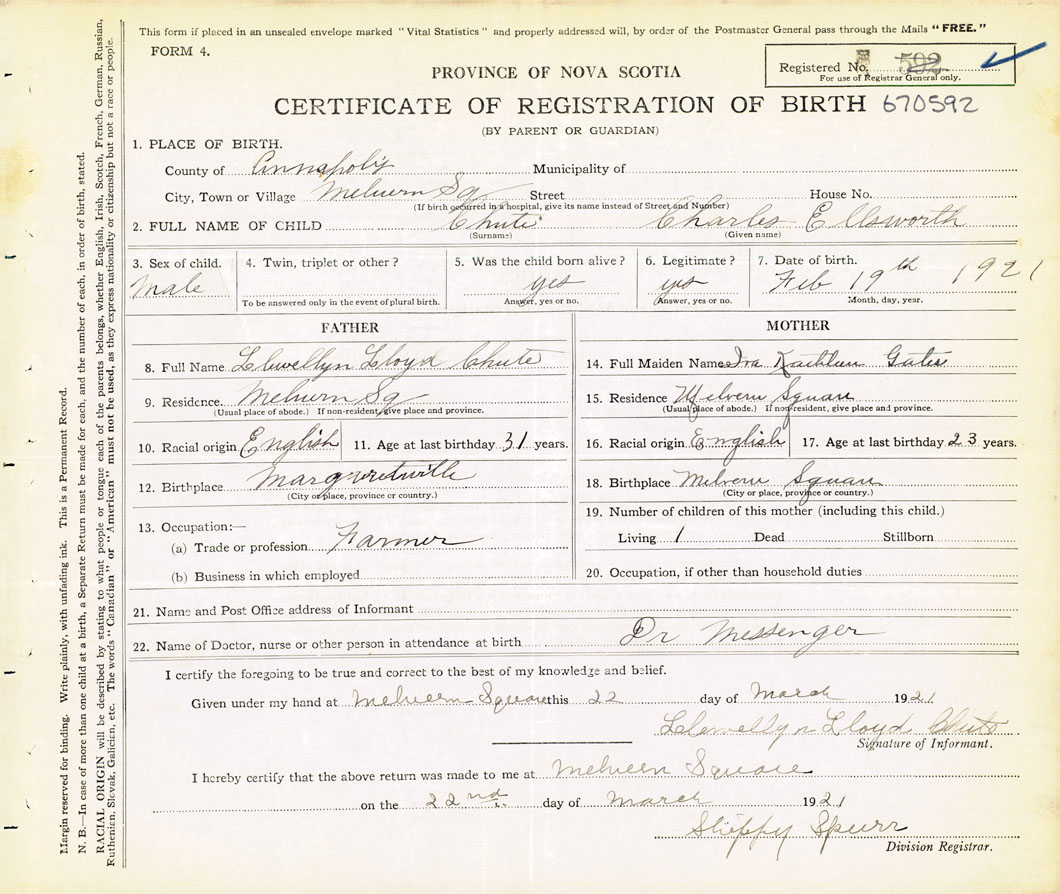 This form if placed in an unsealed envelope marked "Vital Statistics" and properly addressed will, by order of the Postmaster General pass through the Mails "FREE."
FORM 4.
Registered No. 592
For use of Registrar General only.
PROVINCE OF NOVA SCOTIA
CERTIFICATE OF REGISTRATION OF BIRTH 670592
(BY PARENT OR GUARDIAN)
1. PLACE OF BIRTH.
County of Annapolis Municipality of
City, Town or Village Melvern Sq Street House No.
(If birth occurred in a hospital, give its name instead of Street and Number)
2. FULL NAME OF CHILD Chute Charles Ellsworth
(Surname) (Given name)
3. Sex of child. 4. Twin, triplet or other? 5. Was the child born alive? 6. Legitimate? 7. Date of birth.
Male yes yes Feb 19th 1921
To be answered only in the event of plural birth. Answer, yes or no. Answer, yes or no. Month, day, year.
FATHER
8. Full Name Llewellyn Lloyd Chute
9. Residence. Melvern Sq
(Usual place of abode.) If non-resident, give place and province.
10. Racial origin English 11. Age at last birthday 31 years.
12. Birthplace Margaretville
(City or place, province or country.)
13. Occupation:—
(a) Trade or profession Farmer
(b) Business in which employed
MOTHER
14. Full Maiden Name Iva Kathleen Gates
15. Residence Melvern Square
(Usual place of abode.) If non-resident, give place and province.
16. Racial origin English 17. Age at last birthday 23 years.
18. Birthplace Melvern Square
(City or place, province or country.)
19. Number of children of this mother (including this child.)
Living 1 Dead Stillborn
20. Occupation, if other than household duties
21. Name and Post Office address of Informant
22. Name of Doctor, nurse or other person in attendance at birth Dr Messenger
I certify the foregoing to be true and correct to the best of my knowledge and belief.
Given under my hand at Melveern Square this 22 day of March 1921
Llewellyn Lloyd Chute
Signature of Informant.
I hereby certify that the above return was made to me at Melveern Square
on the 22nd. day of March 1921
Spurr
Division Registrar.
Margin reserved for binding. Write plainly, with unfading ink. This is a Permanent Record.
N. B.—In case of more than one child at a birth, a Separate Return must be made for each, and the number of each, in order of birth, stated.
RACIAL ORIGIN will be described by stating to what people or tongue each of the parents belongs, whether English, Irish, Scotch, French, German, Russian,
Ruthenian, Slovak, Galician, etc. The words "Canadian" or "American" must not be used, as they express nationality or citizenship but not a race or people.